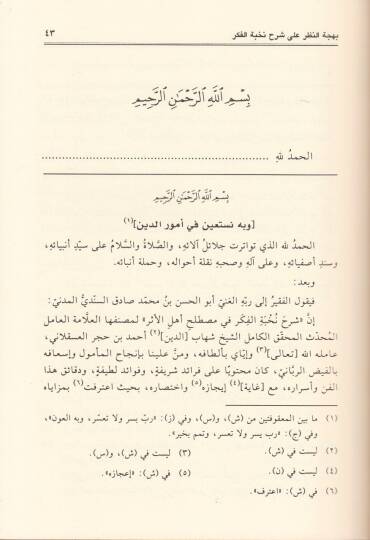 بهجة النظر على شرح نخبة الفكر
٤٣
بِسْمِ اللَّهِ الرَّحْمَٰنِ الرَّحِيمِ
الحمدُ للهِ ................................................................
بِسْمِ اللَّهِ الرَّحْمَٰنِ الرَّحِيمِ
[وبه نستعين في أمور الدين](١)
الحمدُ لله الذي تواترت جلائلُ آلائهِ، والصَّلاةُ والسَّلامُ على سيّدِ أنبيائهِ،
وسندِ أصفيائهِ، وعلى آلهِ وصحبهِ نقلة أحواله، وحملة أنبائه.
وبعد:
فيقول الفقيرُ إلى ربّهِ الغنيّ أبو الحسن بنُ محمّد صادق السنديُّ المدنيّ:
إنَّ «شرحَ نُخْبَةِ الفِكَر في مصطلح أهلِ الأثرِ» لمصنفها العلّامة العامل
المُحدّث المحقّق الكامل الشيخ شهاب [الدين](٢) أحمد بن حجر العسقلاني،
عامله الله [تعالى](٣) وإيّاي بألطافه، ومنَّ علينا بإنجاح المأمول وإسعافه
بالفيض الربَّانيّ، كان محتويًا على فرائد شريفةٍ، وفوائد لطيفةٍ، ودقائق هذا
الفنّ وأسراره، مع [غاية](٤) إيجازه(٥) واختصاره، بحيث اعترفت(٦) بمزاياه
(١) ما بين المعقوفتين من (ش)، و(س)، وفي (ز): «ربّ يسر ولا تعسّر، وبه العون»،
وفي (ج): «رب يسر ولا تعسر، وتمم بخير».
(٢) ليست في (ش). (٣) ليست في (ش)، و(س).
(٤) ليست في (ن). (٥) في (ش): «إعجازه».
(٦) في (ش): «اعترف».